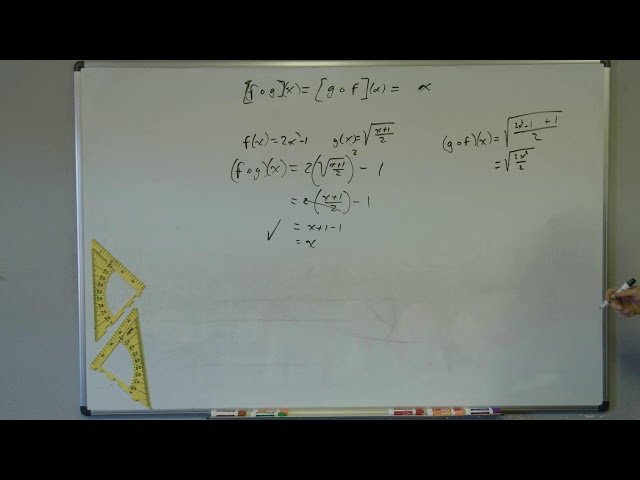 [f∘g](x) = [g∘f](x) = x
f(x) = 2x²-1 g(x) = √((x+1)/2)
(f∘g)(x) = 2(√((x+1)/2))² - 1
= 2((x+1)/2) - 1
✓ = x+1-1
= x
(g∘f)(x) = √((2x²-1 +1)/2)
= √(2x²/2)